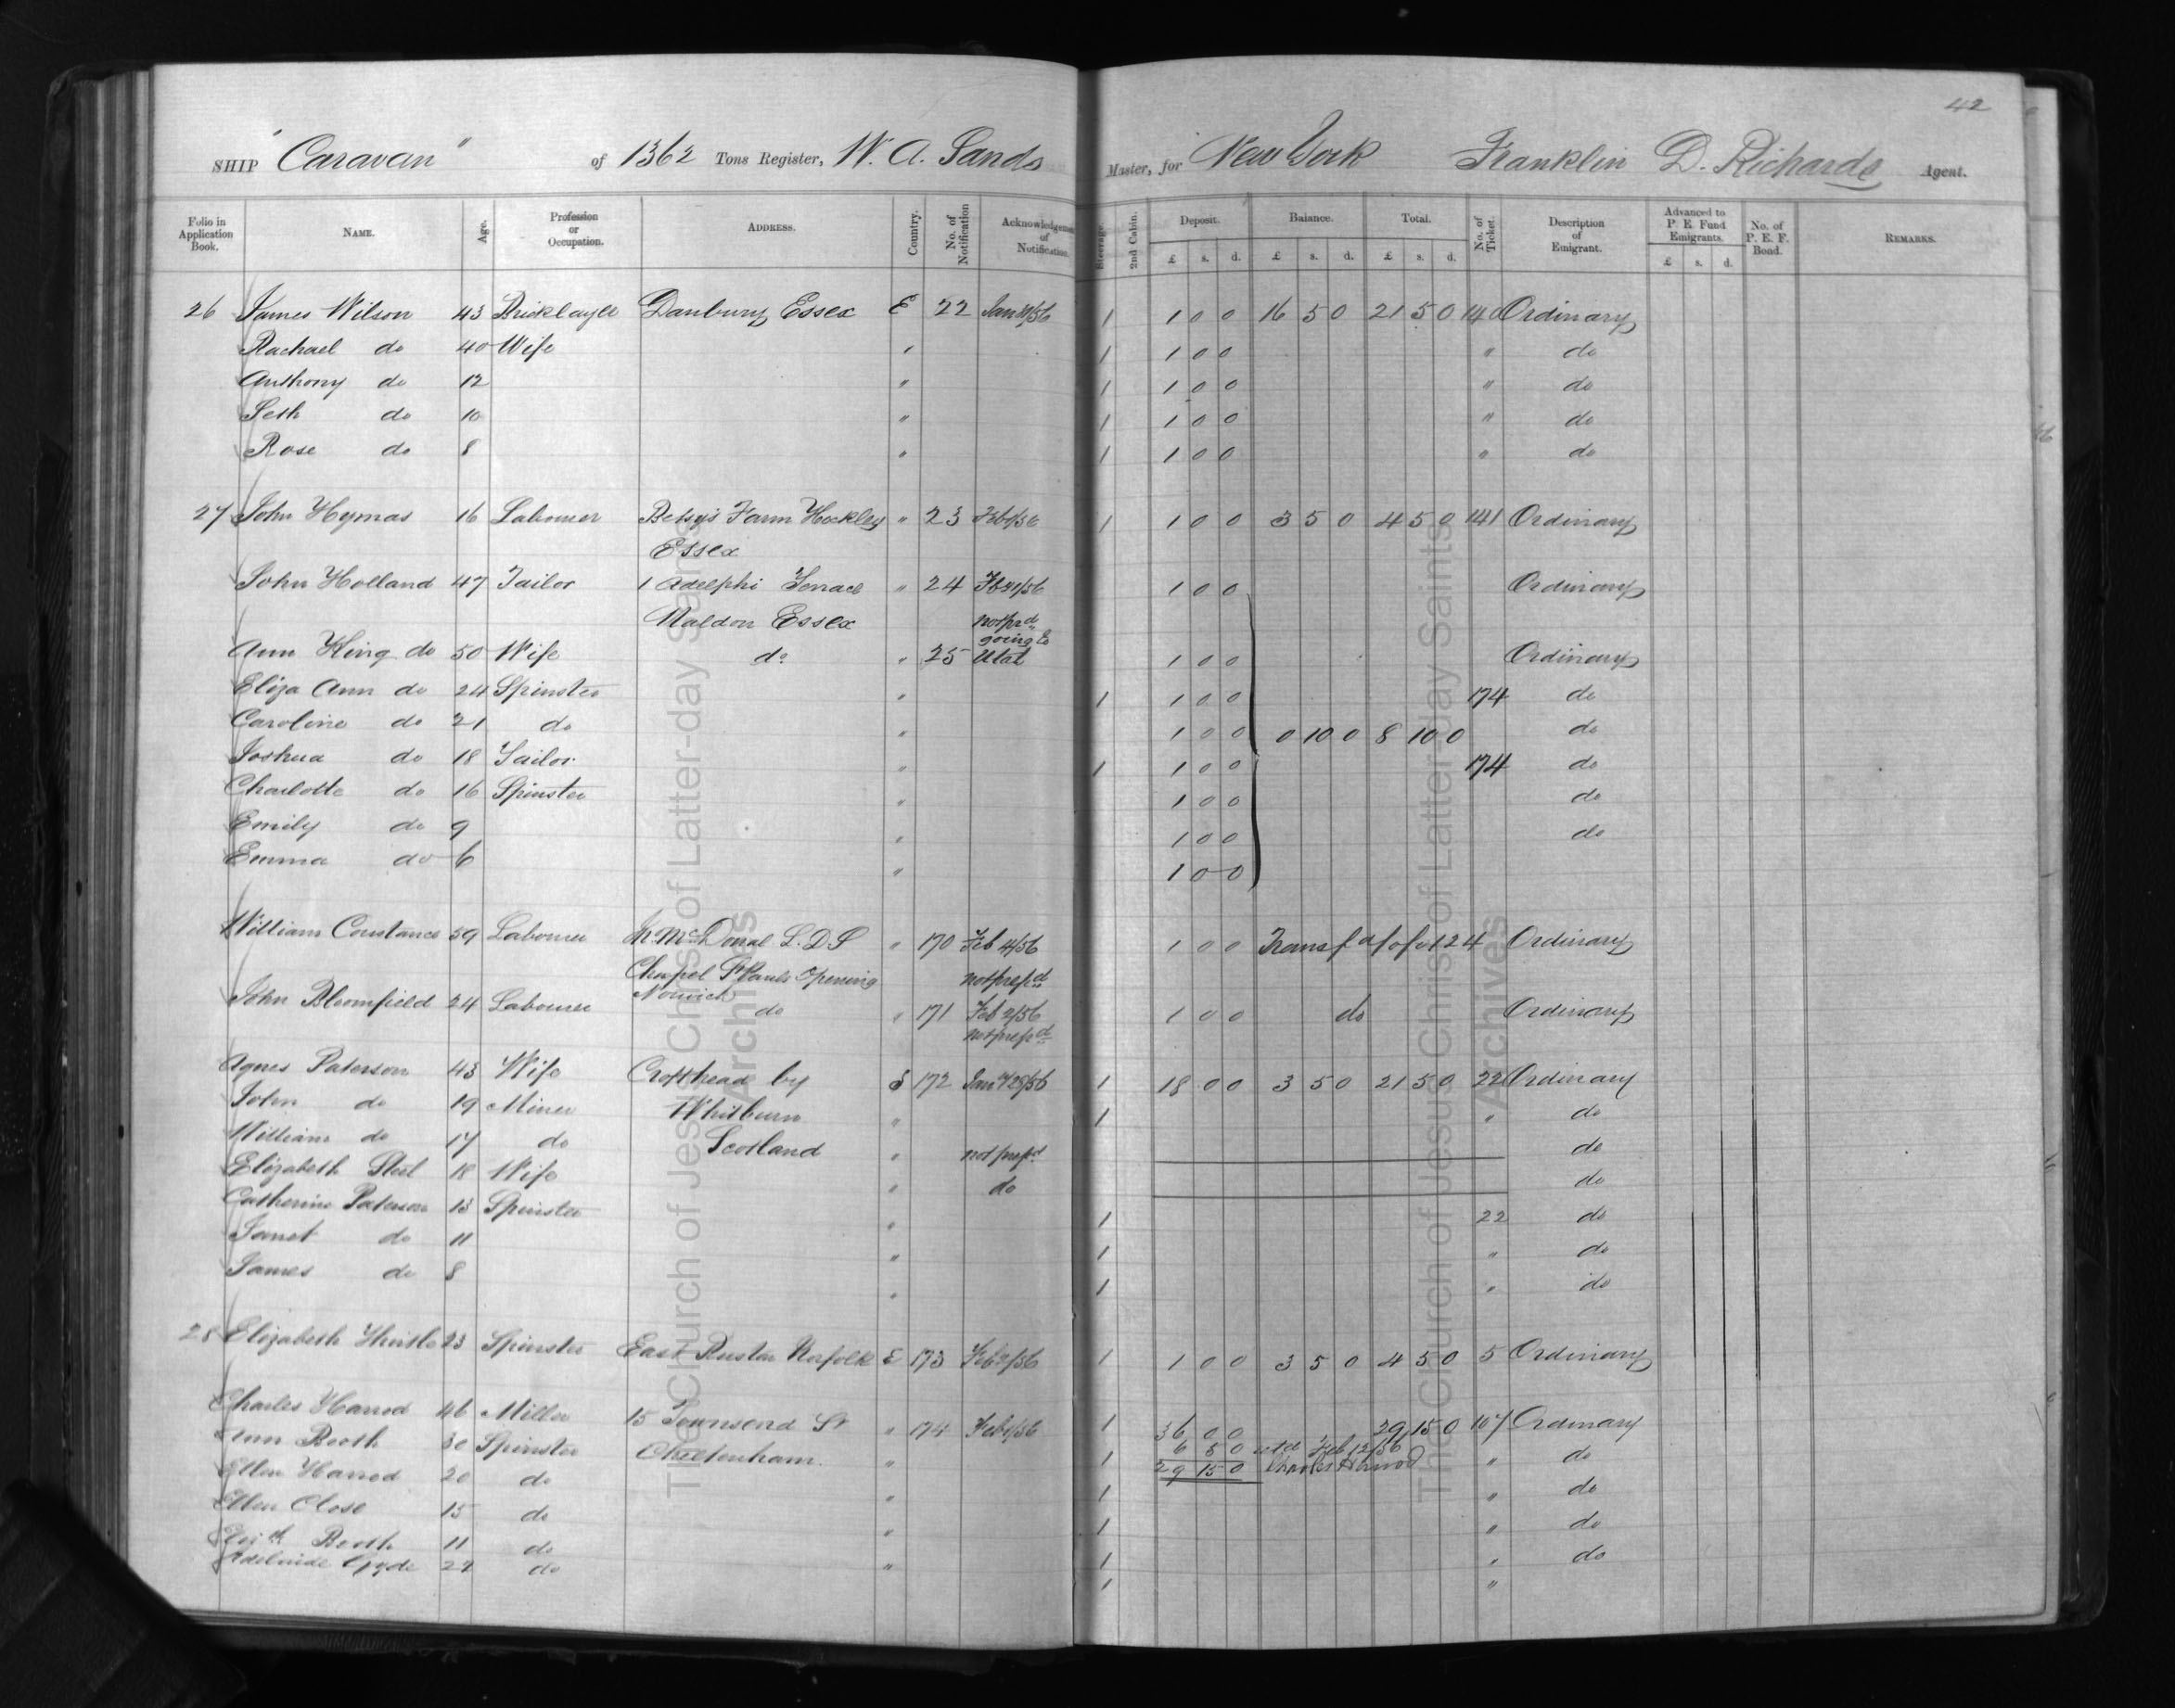 42
SHIP "Caravan" of 1362 Tons Register, W. A. Sands Master, for New York Franklin D. Richards Agent.
Folio in Application Book. NAME. Age. Profession or Occupation. ADDRESS. Country. No. of Notification Acknowledgement of Notification. Steerage. 2nd Cabin. Deposit. £ s. d. Balance. £ s. d. Total. £ s. d. No. of Ticket. Description of Emigrant. Advanced to P. E. Fund Emigrants. £ s. d. No. of P. E. F. Bond. REMARKS.
26 James Wilson 43 Bricklayer Danbury Essex E 22 Jan 31/56 1 1 0 0 16 5 0 21 5 0 140 Ordinary
Rachael do 40 Wife " 1 1 0 0 " do
Anthony do 12 " 1 1 0 0 " do
Seth do 10 " 1 1 0 0 " do
Rose do 8 " 1 1 0 0 " do
27 John Hymas 16 Labourer Betsy's Farm Hockley " 23 Feb 1/56 1 1 0 0 3 5 0 4 5 0 141 Ordinary
Essex
John Holland 47 Tailor 1 Adelphi Terrace " 24 1 0 0 Ordinary
Maldon Essex not prd
going to
Ann King do 50 Wife do " 25 Utah 1 0 0 Ordinary
Eliza Ann do 24 Spinster " 1 1 0 0 174 do
Caroline do 21 do " 1 0 0 0 10 0 8 10 0 do
Joshua do 18 Tailor " 1 1 0 0 174 do
Charlotte do 16 Spinster " 1 0 0 do
Emily do 9 " 1 0 0 do
Emma do 6 " 1 0 0
William Constance 59 Labourer McDonal L.D.S " 170 Feb 4/56 1 0 0 Transfd fo 124 Ordinary
Chapel St Pauls Opening not prepd
Norwich
John Bloomfield 24 Labourer do " 171 Feb 2/56 1 0 0 do Ordinary
not prepd
Agnes Paterson 43 Wife Crofthead by S 172 Jany 28/56 1 18 0 0 3 5 0 21 5 0 22 Ordinary
John do 19 Miner Whitburn " 1 " do
William do 17 do Scotland " not prepd do
Elizabeth Steel 18 Wife " do do
Catherine Paterson 13 Spinster " 1 22 do
Janet do 11 " 1 " do
James do 8 " 1 " do
28 Elizabeth 23 Spinster East Ruston Norfolk E 173 Feb 2/56 1 1 0 0 3 5 0 4 5 0 5 Ordinary
Charles Harrod 46 Miller 15 Townsend St " 174 Feb 1/56 1 36 0 0 29 15 0 107 Ordinary
Ann Booth 30 Spinster Cheltenham " 1 6 5 0 retd Feb 12/56 " do
29 15 0 Charles Harrod
Ellen Harrod 20 do " 1 " do
Ellen Close 15 do " 1 " do
Elizth Booth 11 do " 1 " do
Adelaide Gyde 24 do 1 "